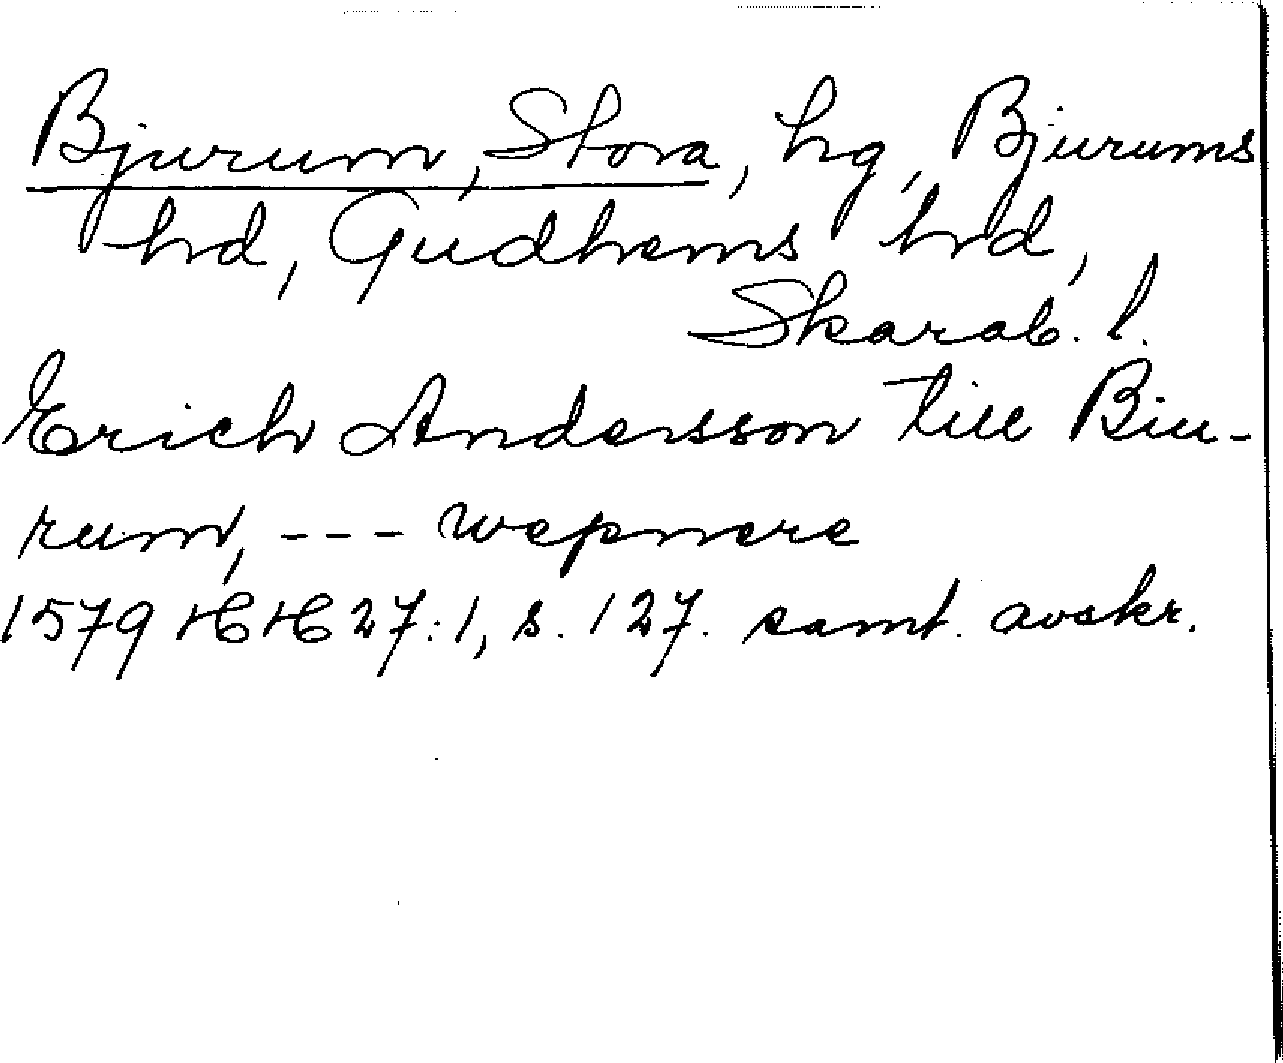 Bjurum, Stora, hg, Bjurums
hd, Gudhems hrd,
Skarab. l.
Erich Andersson till Biu-
rum, --- wepnere
1579 HH 27:1, s. 127. samt. avskr.